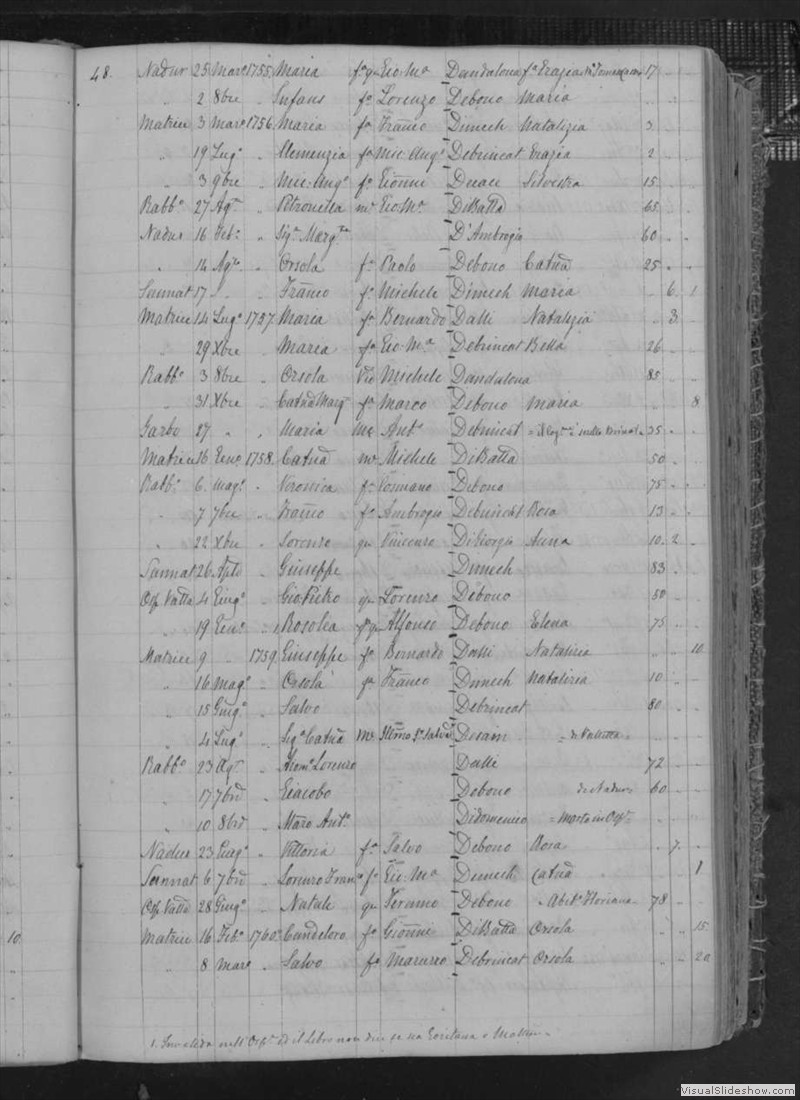 48. Nadur 25 Mar: 1755 Maria fa qm Gio:Ma Dandalona fa Grazia 17
" 2 8bre " Infans fa Lorenzo Debono Maria
Matrice 3 Mar: 1756 Maria fa Franco Dimech Natalizia 3
" 19 Lug: " Clemenzia fa Mic: Ang: Debrincat Grazia 2
" 3 9bre " Mic: Ang: fo Gionni Silvestra 15
Rabbo 27 Ago " Petronilla mr Gio:Ma DiBatta 65
Nadur 16 Feb: " Siga Margta D'Ambrogio 60
" 14 Ago " Orsola fa Paolo Debono Catna 25
Sannat 17 " " Franco fo Michele Dimech Maria " 6 1
Matrice 14 Lug: 1757 Maria fa Bernardo Dalli Natalizia " 3
" 29 Xbre " Maria fa Gio:Ma Debrincat Bella 26
Rabbo 3 8bre " Orsola Michele Dandalona 85
" 31 Xbre " Catna Marga fa Marco Debono Maria " " 8
Garbo 27 " " Maria mr Anto Debrincat 35
Matrice 16 Geno 1758 Catna mr Michele DiBatta 50
Rabbo 6 Mag: " Veronica fa Cosmano Debono 75
" 7 7bre " Franco fo Ambrogio Debrincat Rosa 13
" 22 Xbre " Lorenzo qm Vincenzo DiGiorgio Anna 10 2
Sannat 26 Aple " Giuseppe Dimech 83
Osp Vatta 4 Giug: " Gio:Pietro qm Lorenzo Debono 50
" 19 Geno " 1 Rosolea fa qm Alfonso Debono Elena 75
Matrice 9 " 1759 Giuseppe fo Bernardo Dalli Natalizia " " 10
" 16 Mag: " Orsola qm Franco Dimech Natalizia 10
" 15 Giug: " Salvo Debrincat 80
" 4 Lug: " Siga Catna mr Desain = di Valletta
Rabbo 23 Ago " Lorenzo Dalli 72
" 17 7bre " Giacobo Debono di Nadur 60
" 10 8bre " Anto Didomenico = Morto in Ospe
Nadur 23 Giug: " Vittoria fa Salvo Debono Rosa " 7
Sannat 6 7bre " Lorenzo Franco fo Gio:Ma Dimech Catna 1
Osp Vatta 28 Giug: " Natale qm Debono Abite Floriana 78
Matrice 16 Feb: 1760 Candeloro fo Gionni DiBatta Orsola " " 15
" 8 Mar: " Salvo fo Debrincat Orsola " " 20
10
1. nell' Ospe ed il Libro non dice se sia Gozitana o
VisualSlideshow.com